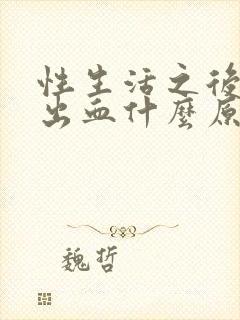 性生活之後
出血什麼原
魏哲